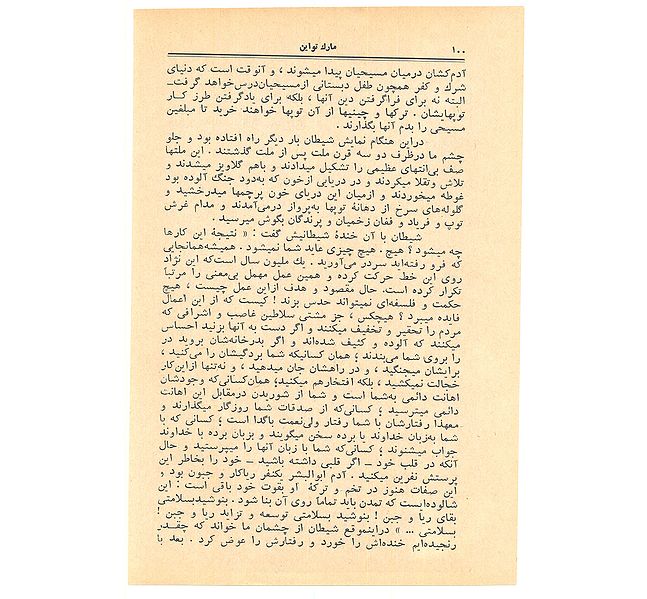 ۱۰۰
مارك تواین
آدم‌کشان درمیان مسیحیان پیدا میشوند ، و آنوقت است که دنیای
شرك و کفر همچون طفل دبستانی ازمسیحیان‌درس‌خواهد گرفت_
البته نه برای فراگرفتن دین آنها ، بلکه برای یادگرفتن طرز کار
توپهایشان . ترکها و چینیها از آن توپها خواهند خرید تا مبلغین
مسیحی را بدم آنها بگذارند .
دراین هنگام نمایش شیطان بار دیگر راه افتاده بود و جلو
چشم ما درظرف دو سه قرن ملت پس از ملت گذشتند . این ملتها
صف بی‌انتهای عظیمی را تشکیل میدادند و باهم گلاویز میشدند و
تلاش وتقلا میکردند و در دریایی ازخون که به‌دود جنگ آلوده بود
غوطه میخوردند و ازمیان این دریای خون پرچمها میدرخشید و
گلوله‌های سرخ از دهانهٔ توپها به‌پرواز درمی‌آمدند و مدام غرش
توپ و فریاد و فغان زخمیان و پرندگان بگوش میرسید .
شیطان با آن خندهٔ شیطانیش گفت : « نتیجهٔ این کارها
چه میشود ؟ هیچ . هیچ چیزی عاید شما نمیشود . همیشه‌همانجایی
که فرو رفته‌اید سردر می‌آورید . یك ملیون سال است‌که این نژاد
روی این خط حرکت کرده و همین عمل مهمل بی‌معنی را مرتباً
تکرار کرده است. حال مقصود و هدف ازاین عمل چیست ، هیچ
حکمت و فلسفه‌ای نمیتواند حدس بزند ! کیست که از این اعمال
فایده میبرد ؟ هیچکس ، جز مشتی سلاطین غاصب و اشرافی که
مردم را تحقیر و تخفیف میکنند و اگر دست به آنها بزنید احساس
میکنند که آلوده و کثیف شده‌اند و اگر بدرخانه‌شان بروید در
را بروی شما می‌بندند ؛ همان کسانیکه شما بردگیشان را می‌کنید ،
برایشان میجنگید ، و در راهشان جان میدهید ، و نه‌تنها ازاین‌کار
خجالت نمیکشید ، بلکه افتخارهم میکنید؛ همان‌کسانی‌که وجودشان
اهانت دائمی به‌شما است و شما از شوریدن درمقابل این اهانت
دائمی میترسید ؛ کسانی‌که از صدقات شما روزگار میگذارند و
معهذا رفتارشان با شما رفتار ولی‌نعمت باگدا است ؛ کسانی که با
شما به‌زبان خداوند با برده سخن میگویند و بزبان برده با خداوند
جواب میشنوند ؛ کسانی‌که شما با زبان آنها را میپرستید و حال
آنکه در قلب خود _ اگر قلبی داشته باشید _ خود را بخاطر این
پرستش نفرین میکنید . آدم ابوالبشر یکنفر ریاکار و جبون بود ,
این صفات هنوز در تخم و ترکهٔ او بقوت خود باقی است : این
شالوده‌ایست که تمدن باید تماماً روی آن بنا شود . بنوشیدبسلامتی
بقای ریا و جبن ! بنوشید بسلامتی توسعه و تزاید ریا و جبن !
بسلامتی ... » دراینموقع شیطان از چشمان ما خواند که چقدر
رنجیده‌ایم خنده‌اش را خورد و رفتارش را عوض کرد . بعد با